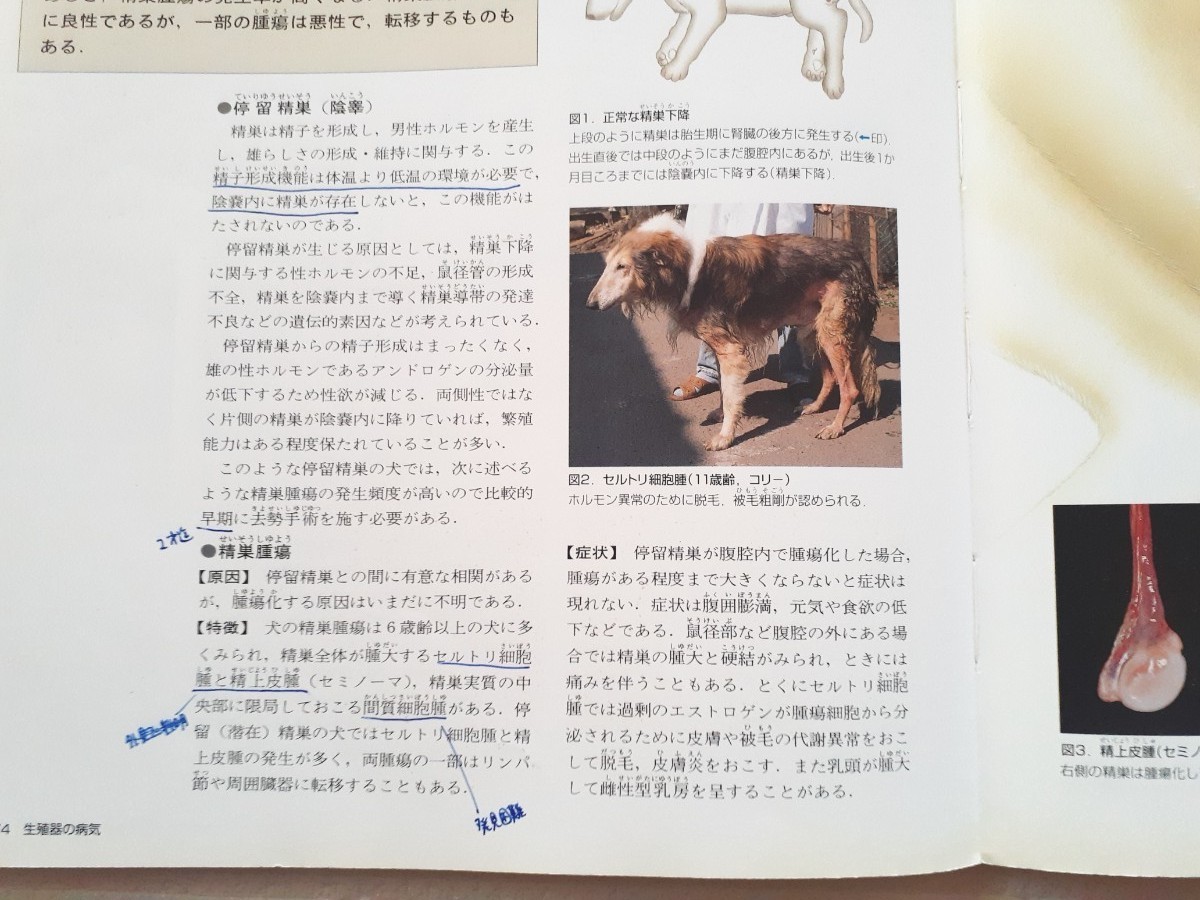 に良性であるが，一部の腫瘍は悪性で，転移するものも
ある．
●停留精巣（陰睾）
精巣は精子を形成し，男性ホルモンを産生
し，雄らしさの形成・維持に関与する．この
精子形成機能は体温より低温の環境が必要で，
陰嚢内に精巣が存在しないと，この機能がは
たされないのである．
停留精巣が生じる原因としては，精巣下降
に関与する性ホルモンの不足，鼠径管の形成
不全，精巣を陰嚢内まで導く精巣導帯の発達
不良などの遺伝的素因などが考えられている．
停留精巣からの精子形成はまったくなく，
雄の性ホルモンであるアンドロゲンの分泌量
が低下するため性欲が減じる．両側性ではな
く片側の精巣が陰嚢内に降りていれば，繁殖
能力はある程度保たれていることが多い．
このような停留精巣の犬では，次に述べる
ような精巣腫瘍の発生頻度が高いので比較的
早期に去勢手術を施す必要がある．
●精巣腫瘍
【原因】 停留精巣との間に有意な相関がある
が，腫瘍化する原因はいまだに不明である．
【特徴】 犬の精巣腫瘍は6歳齢以上の犬に多
くみられ，精巣全体が腫大するセルトリ細胞
腫と精上皮腫（セミノーマ），精巣実質の中
央部に限局しておこる間質細胞腫がある．停
留（潜在）精巣の犬ではセルトリ細胞腫と精
上皮腫の発生が多く，両腫瘍の一部はリンパ
節や周囲臓器に転移することもある．
発見困難
4 生殖器の病気
図1．正常な精巣下降
上段のように精巣は胎生期に腎臓の後方に発生する(←印)．
出生直後では中段のようにまだ腹腔内にあるが，出生後1か
月目ころまでには陰嚢内に下降する(精巣下降)．
図2．セルトリ細胞腫(11歳齢，コリー)
ホルモン異常のために脱毛，被毛粗剛が認められる．
【症状】 停留精巣が腹腔内で腫瘍化した場合，
腫瘍がある程度まで大きくならないと症状は
現れない．症状は腹囲膨満，元気や食欲の低
下などである．鼠径部など腹腔の外にある場
合では精巣の腫大と硬結がみられ，ときには
痛みを伴うこともある．とくにセルトリ細胞
腫では過剰のエストロゲンが腫瘍細胞から分
泌されるために皮膚や被毛の代謝異常をおこ
して脱毛，皮膚炎をおこす．また乳頭が腫大
して雌性型乳房を呈することがある．
図3．精上皮腫(セミノ
右側の精巣は腫瘍化し